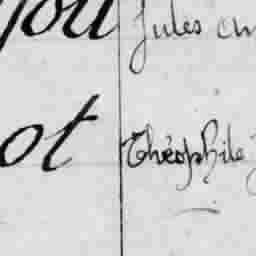 you Jules em
ot Théophile